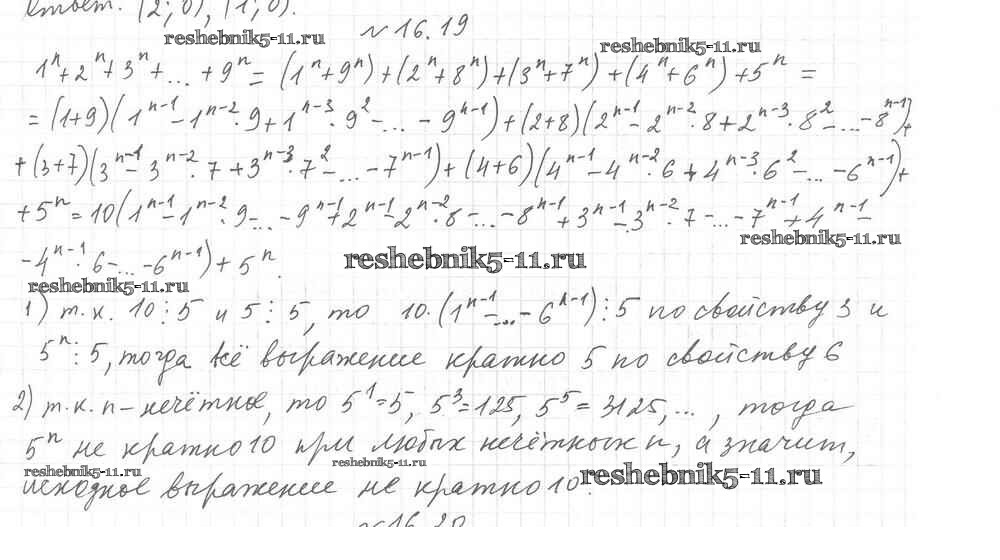 Ответ: (2; 0), (1; 0).
№ 16.19
reshebnik5-11.ru
reshebnik5-11.ru
1ⁿ+2ⁿ+3ⁿ+...+9ⁿ = (1ⁿ+9ⁿ)+(2ⁿ+8ⁿ)+(3ⁿ+7ⁿ)+(4ⁿ+6ⁿ)+5ⁿ =
= (1+9)(1ⁿ⁻¹-1ⁿ⁻²·9+1ⁿ⁻³·9²-...-9ⁿ⁻¹)+(2+8)(2ⁿ⁻¹-2ⁿ⁻²·8+2ⁿ⁻³·8²-...-8ⁿ⁻¹)+
+(3+7)(3ⁿ⁻¹-3ⁿ⁻²·7+3ⁿ⁻³·7²-...-7ⁿ⁻¹)+(4+6)(4ⁿ⁻¹-4ⁿ⁻²·6+4ⁿ⁻³·6²-...-6ⁿ⁻¹)+
+5ⁿ=10(1ⁿ⁻¹-1ⁿ⁻²·9-...-9ⁿ⁻¹+2ⁿ⁻¹-2ⁿ⁻²·8-...-8ⁿ⁻¹+3ⁿ⁻¹-3ⁿ⁻²·7-...-7ⁿ⁻¹+4ⁿ⁻¹-
reshebnik5-11.ru
-4ⁿ⁻¹·6-...-6ⁿ⁻¹)+5ⁿ.
reshebnik5-11.ru
reshebnik5-11.ru
1) т.к. 10⋮5 и 5⋮5, то 10·(1ⁿ⁻¹-...-6ⁿ⁻¹)⋮5 по свойству 3 и
5ⁿ⋮5, тогда всё выражение кратно 5 по свойству 6
2) т.к. n-нечётное, то 5¹=5, 5³=125, 5⁵=3125,..., тогда
5ⁿ не кратно 10 при любых нечётных n, а значит,
reshebnik5-11.ru
reshebnik5-11.ru
исходное выражение не кратно 10.
reshebnik5-11.ru
№16.20